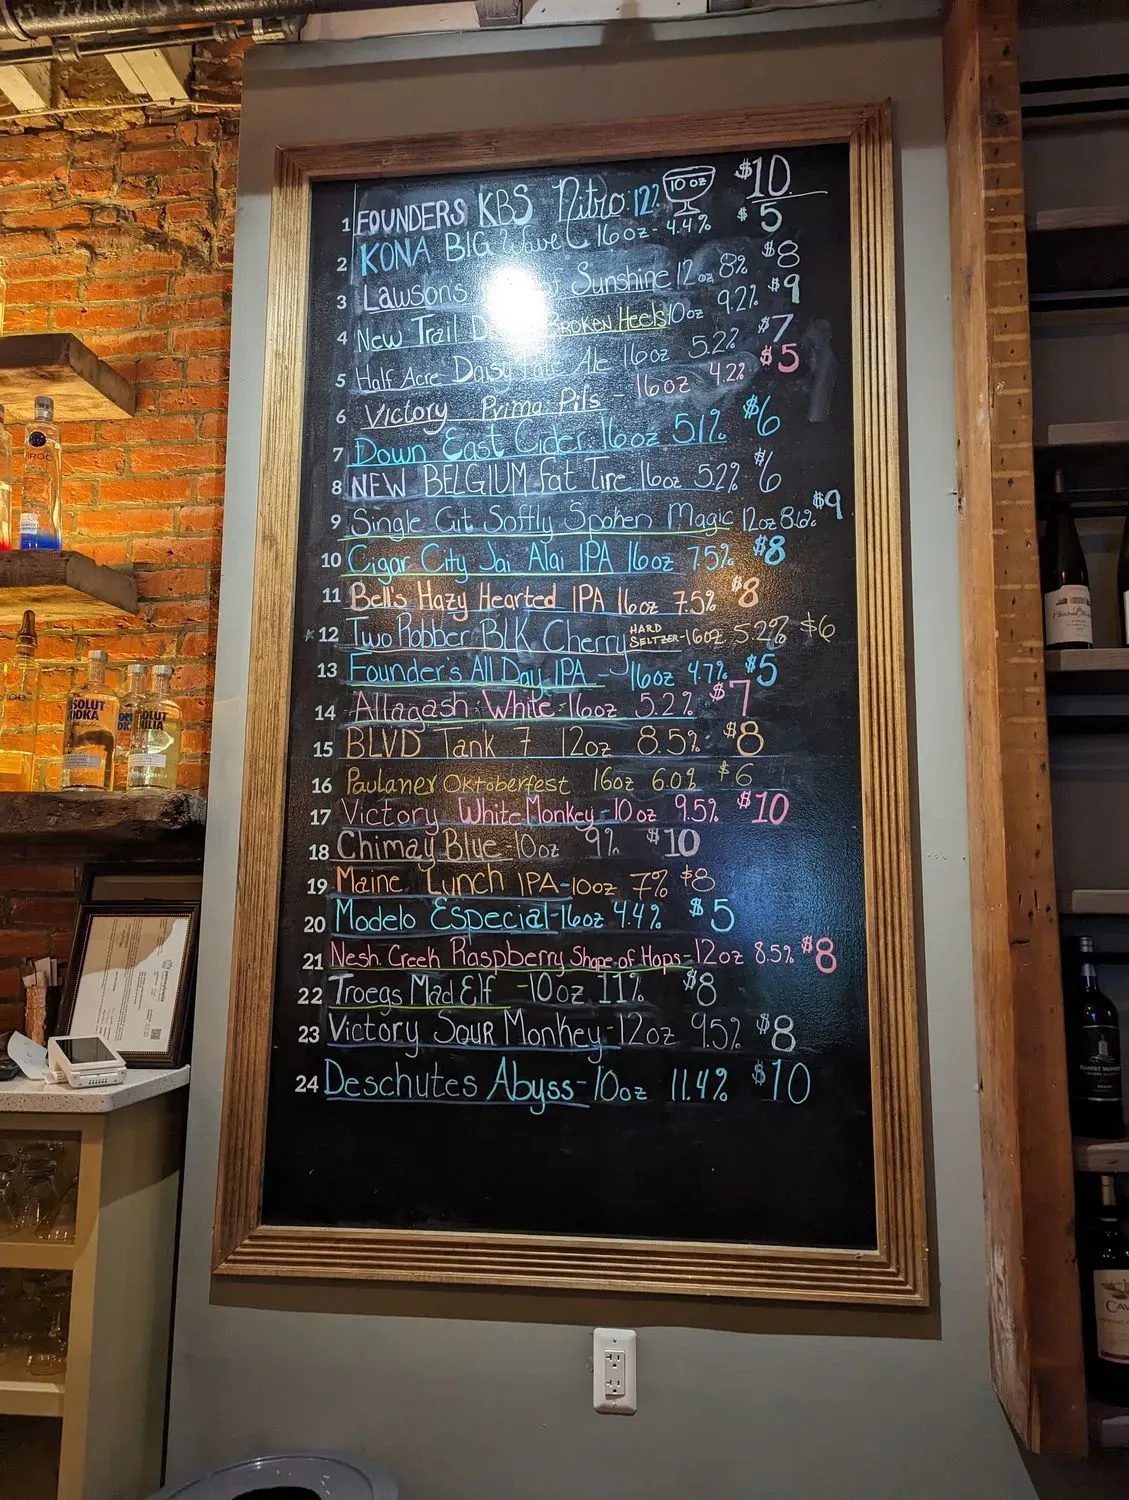 1 FOUNDERS KBS Nitro 12% 10 oz $10
2 KONA BIG Wave 16oz - 4.4% $5
3 Lawsons Sunshine 12oz 8% $8
4 New Trail BROKEN Heels 10oz 9.2% $9
5 Half Acre Daisy Ale 16oz 5.2% $7
6 Victory Prima Pils - 16oz 4.2% $5
7 Down East Cider 16oz 5.1% $6
8 NEW BELGIUM Fat Tire 16oz 5.2% $6
9 Single Cut Softly Spoken Magic 12oz 8.6% $9
10 Cigar City Jai Alai IPA 16oz 7.5% $8
11 Bell's Hazy Hearted IPA 16oz 7.5% $8
12 Two Robber BLK Cherry HARD SELTZER - 16oz 5.2% $6
13 Founder's All Day IPA - 16oz 4.7% $5
14 Allagash White - 16oz 5.2% $7
15 BLVD Tank 7 12oz 8.5% $8
16 Paulaner Oktoberfest 16oz 6.0% $6
17 Victory White Monkey - 10oz 9.5% $10
18 Chimay Blue - 10oz 9% $10
19 Maine Lunch IPA - 10oz 7% $8
20 Modelo Especial - 16oz 4.4% $5
21 Nesh. Creek Raspberry Shape of Hops - 12oz 8.5% $8
22 Troegs Mad Elf - 10oz 11% $8
23 Victory Sour Monkey - 12oz 9.5% $8
24 Deschutes Abyss - 10oz 11.4% $10